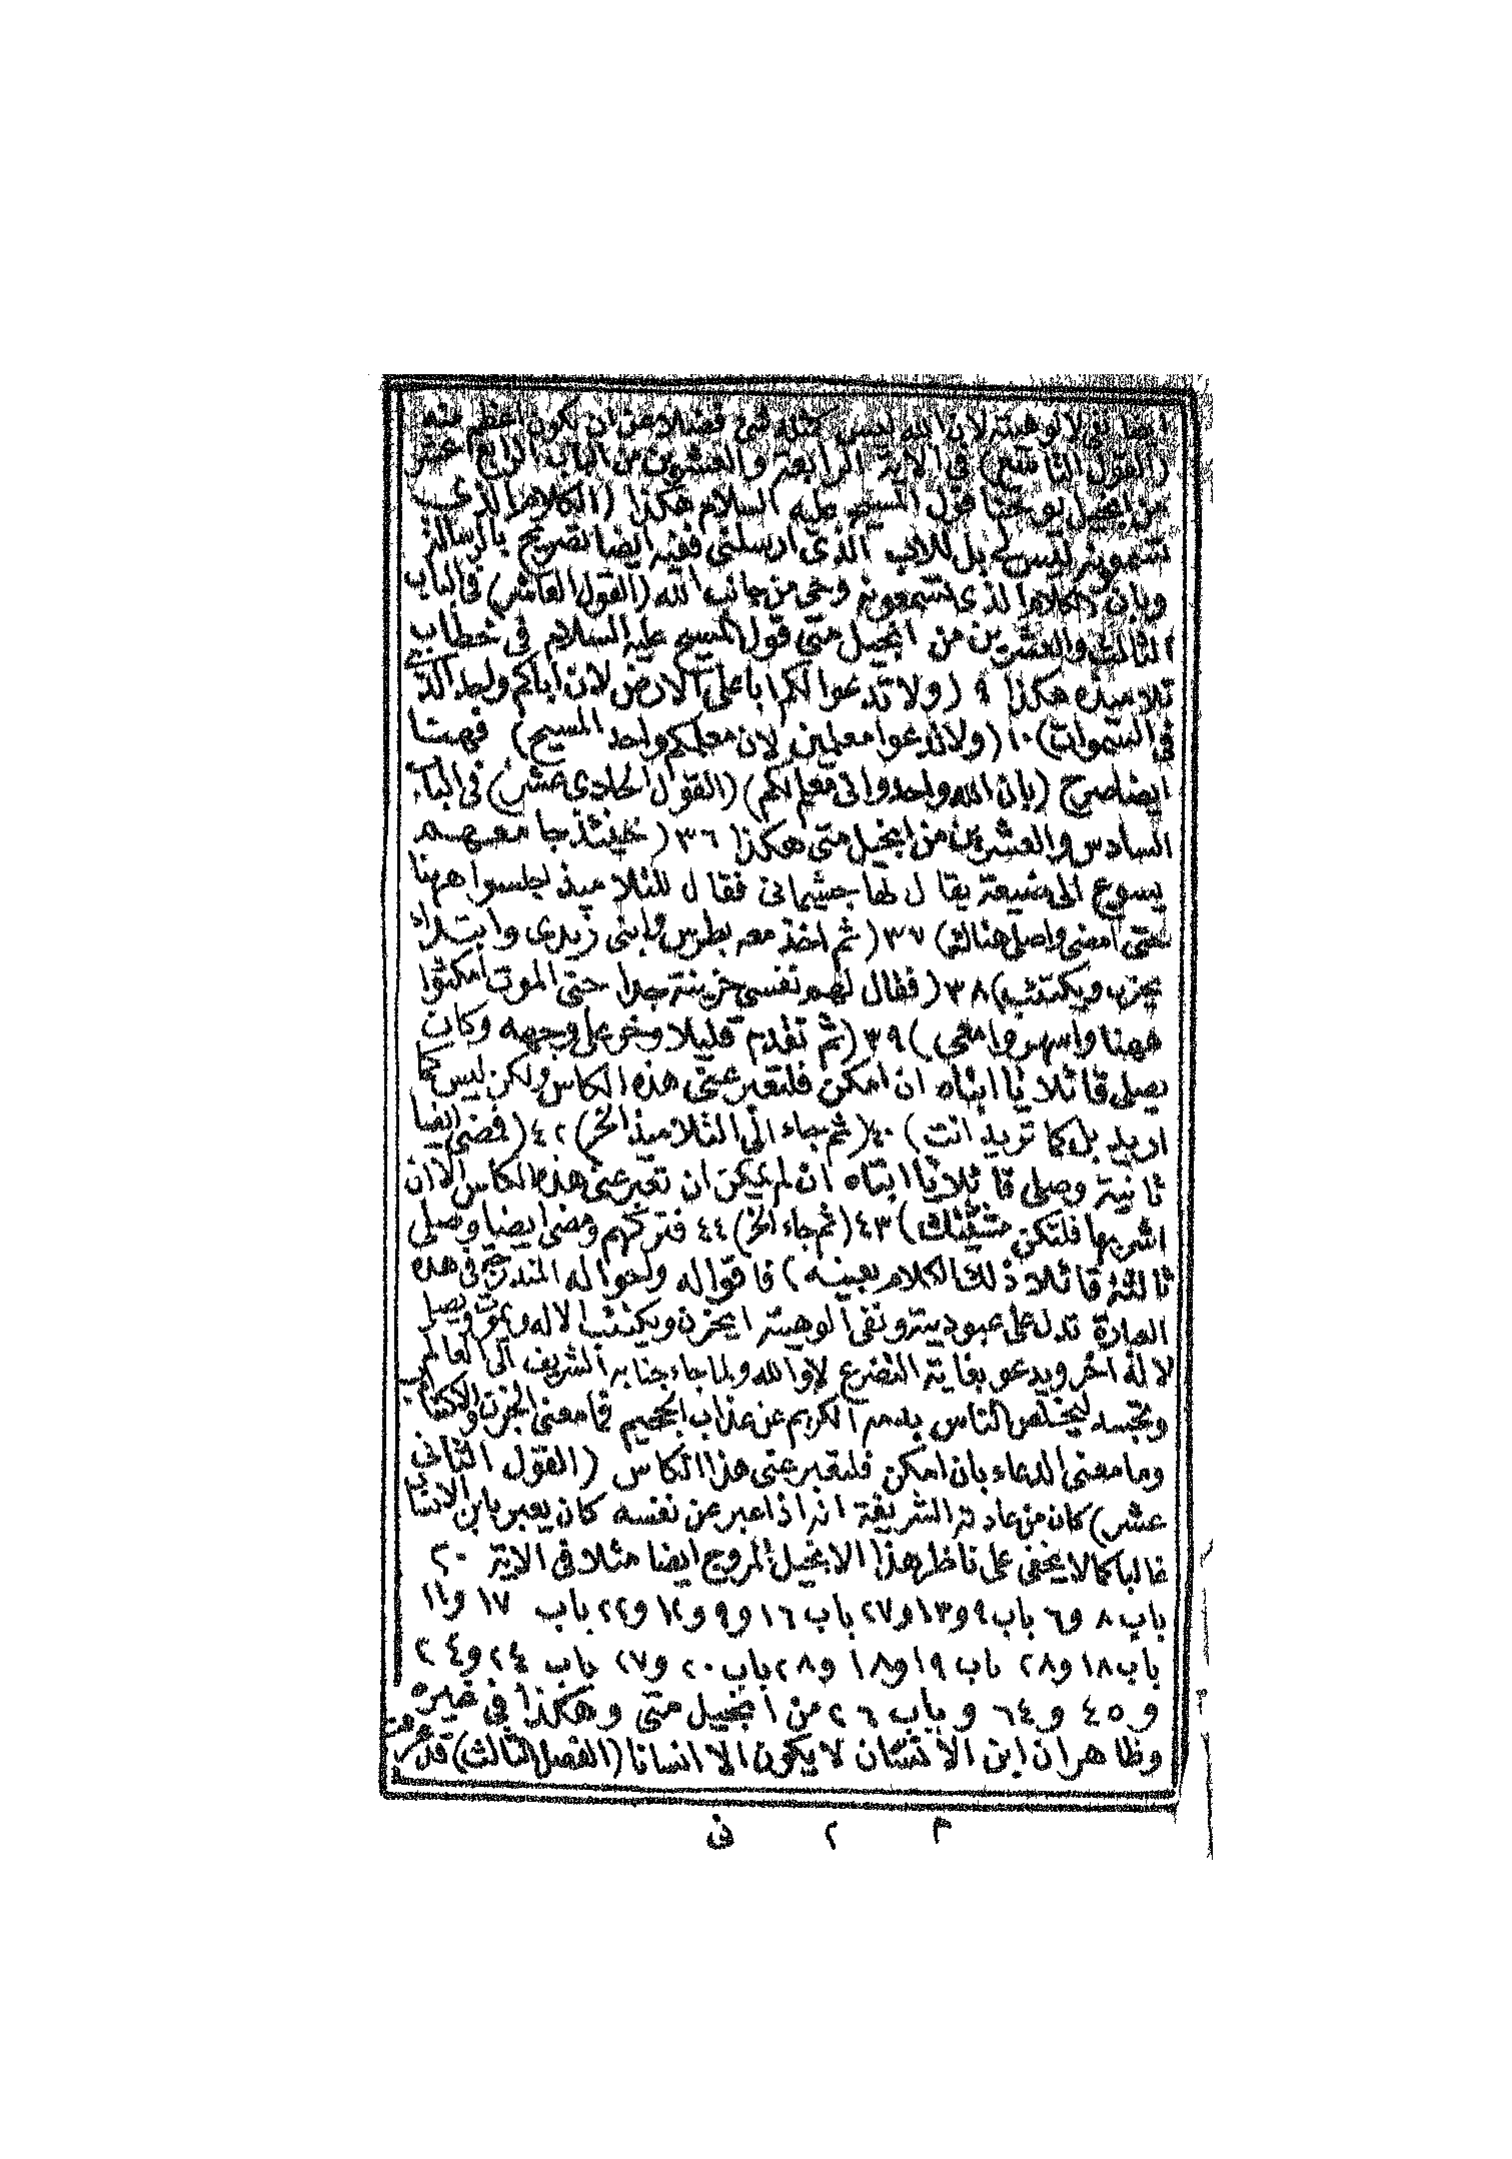 ايضا نفى لالوهيته لان الله ليس كمثله شئ فضلا عن ان يكون اعظم منه
(القول التاسع) فى الاية الرابعة والعشرين من الباب الرابع عشر
من انجيل يوحنا قول المسيح عليه السلام هكذا (الكلام الذى
تسمعونه ليس لى بل للاب الذى ارسلنى ففيه ايضا تصريح بالرسالة
وبان الكلام الذى تسمعونه وحى من جانب الله (القول العاشر) فى الباب
الثالث والعشرين من انجيل متى قول المسيح عليه السلام فى خطاب
تلاميذه هكذا ٩ (ولا تدعوا لكم ابا على الارض لان اباكم واحد الذى
فى السموات) ١٠ (ولا تدعوا معلمين لان معلمكم واحد المسيح) فههنا
ايضا صرح (بان الله واحد وانى معلم لكم) (القول الحادى عشر) فى الباب
السادس والعشرين من انجيل متى هكذا ٣٦ (حينئذ جا معهم
يسوع الى ضيعة يقال لها جشيمانى فقال للتلاميذ اجلسوا ههنا
حتى امضى واصلى هنالك) ٣٧ (ثم اخذ معه بطرس وابنى زبدى وابتداء
يحزن ويكتئب) ٣٨ (فقال لهم نفسى حزينة جدا حتى الموت امكثوا
ههنا واسهروا معى) ٣٩ (ثم تقدم قليلا وخر على وجهه وكان
يصلى قائلا يا ابتاه ان امكن فلتعبر عنى هذه الكاس ولكن ليس كما
اريد بل كما تريد انت) ٤٠ (ثم جاء الى التلاميذ الخ) ٤٢ (فمضى ايضا
ثانية وصلى قائلا يا ابتاه ان لم يمكن ان تعبر عنى هذه الكاس الا ان
اشربها فلتكن مشيئتك) ٤٣ (ثم جاء الخ) ٤٤ فتركهم ومضى ايضا وصلى
ثالثة قائلا ذلك الكلام بعينه) فاقواله واحواله المندرجة فى هذه
العبارة تدل على عبوديته ونفى الوهيته ايحزن ويكتئب الاله ويموت ويصلى
لاله اخر ويدعو بغاية التضرع لا والله ولما جاء جنابه الشريف الى العالم
وتجسد ليخلص الناس بدمه الكريم عن عذاب الجحيم فما معنى الحزن والاكتئاب
وما معنى الدعاء بان امكن فلتعبر عنى هذا الكاس (القول الثانى
عشر) كان من عادته الشريفة انه اذا عبر عن نفسه كان يعبر بابن الانسان
غالبا كما لا يخفى على ناظر هذا الانجيل المروج ايضا مثلا فى الاية ٢٠
باب ٨ و٦ باب ٩ و١٣ و٢٧ باب ١٦ و٩ و١٢ و٢٢ باب ١٧ و١١
باب ١٨ و٢٨ باب ١٩ و١٨ و٢٨ باب ٢٠ و٢٧ باب ٢٤ و٢٤
و٤٥ و٦٤ وباب ٢٦ من انجيل متى وهكذا فى غيره
وظاهر ان ابن الانسان لا يكون الا انسانا (الفصل الثالث) قد عرفت
م ٢ فى